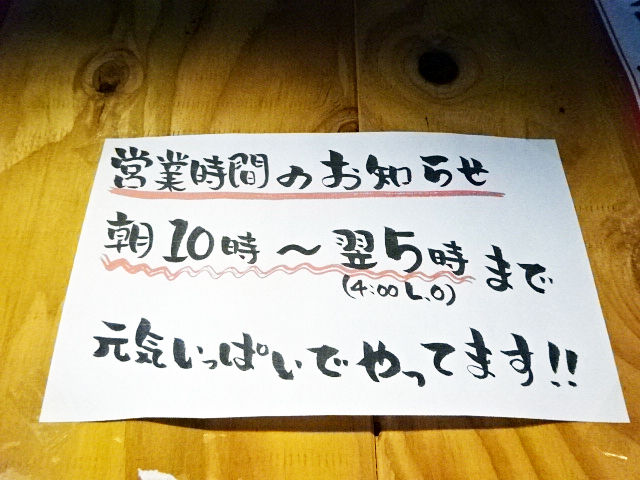 営業時間のお知らせ
朝10時〜翌5時まで
(4:00 L.O)
元気いっぱいでやってます!!